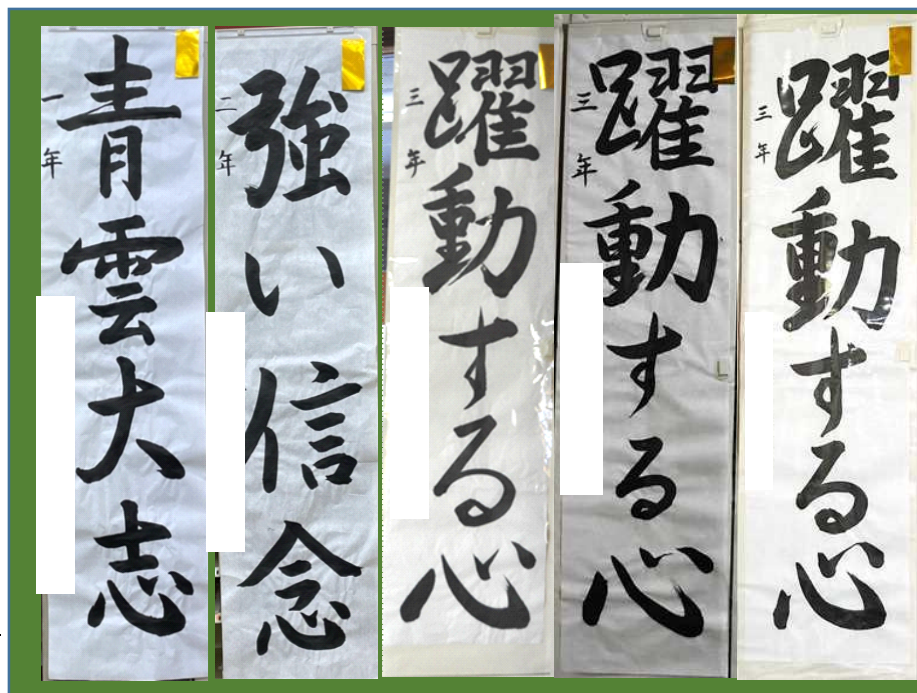 青雲大志
一年
強い信念
二年
躍動する心
三年
躍動する心
三年
躍動する心
三年